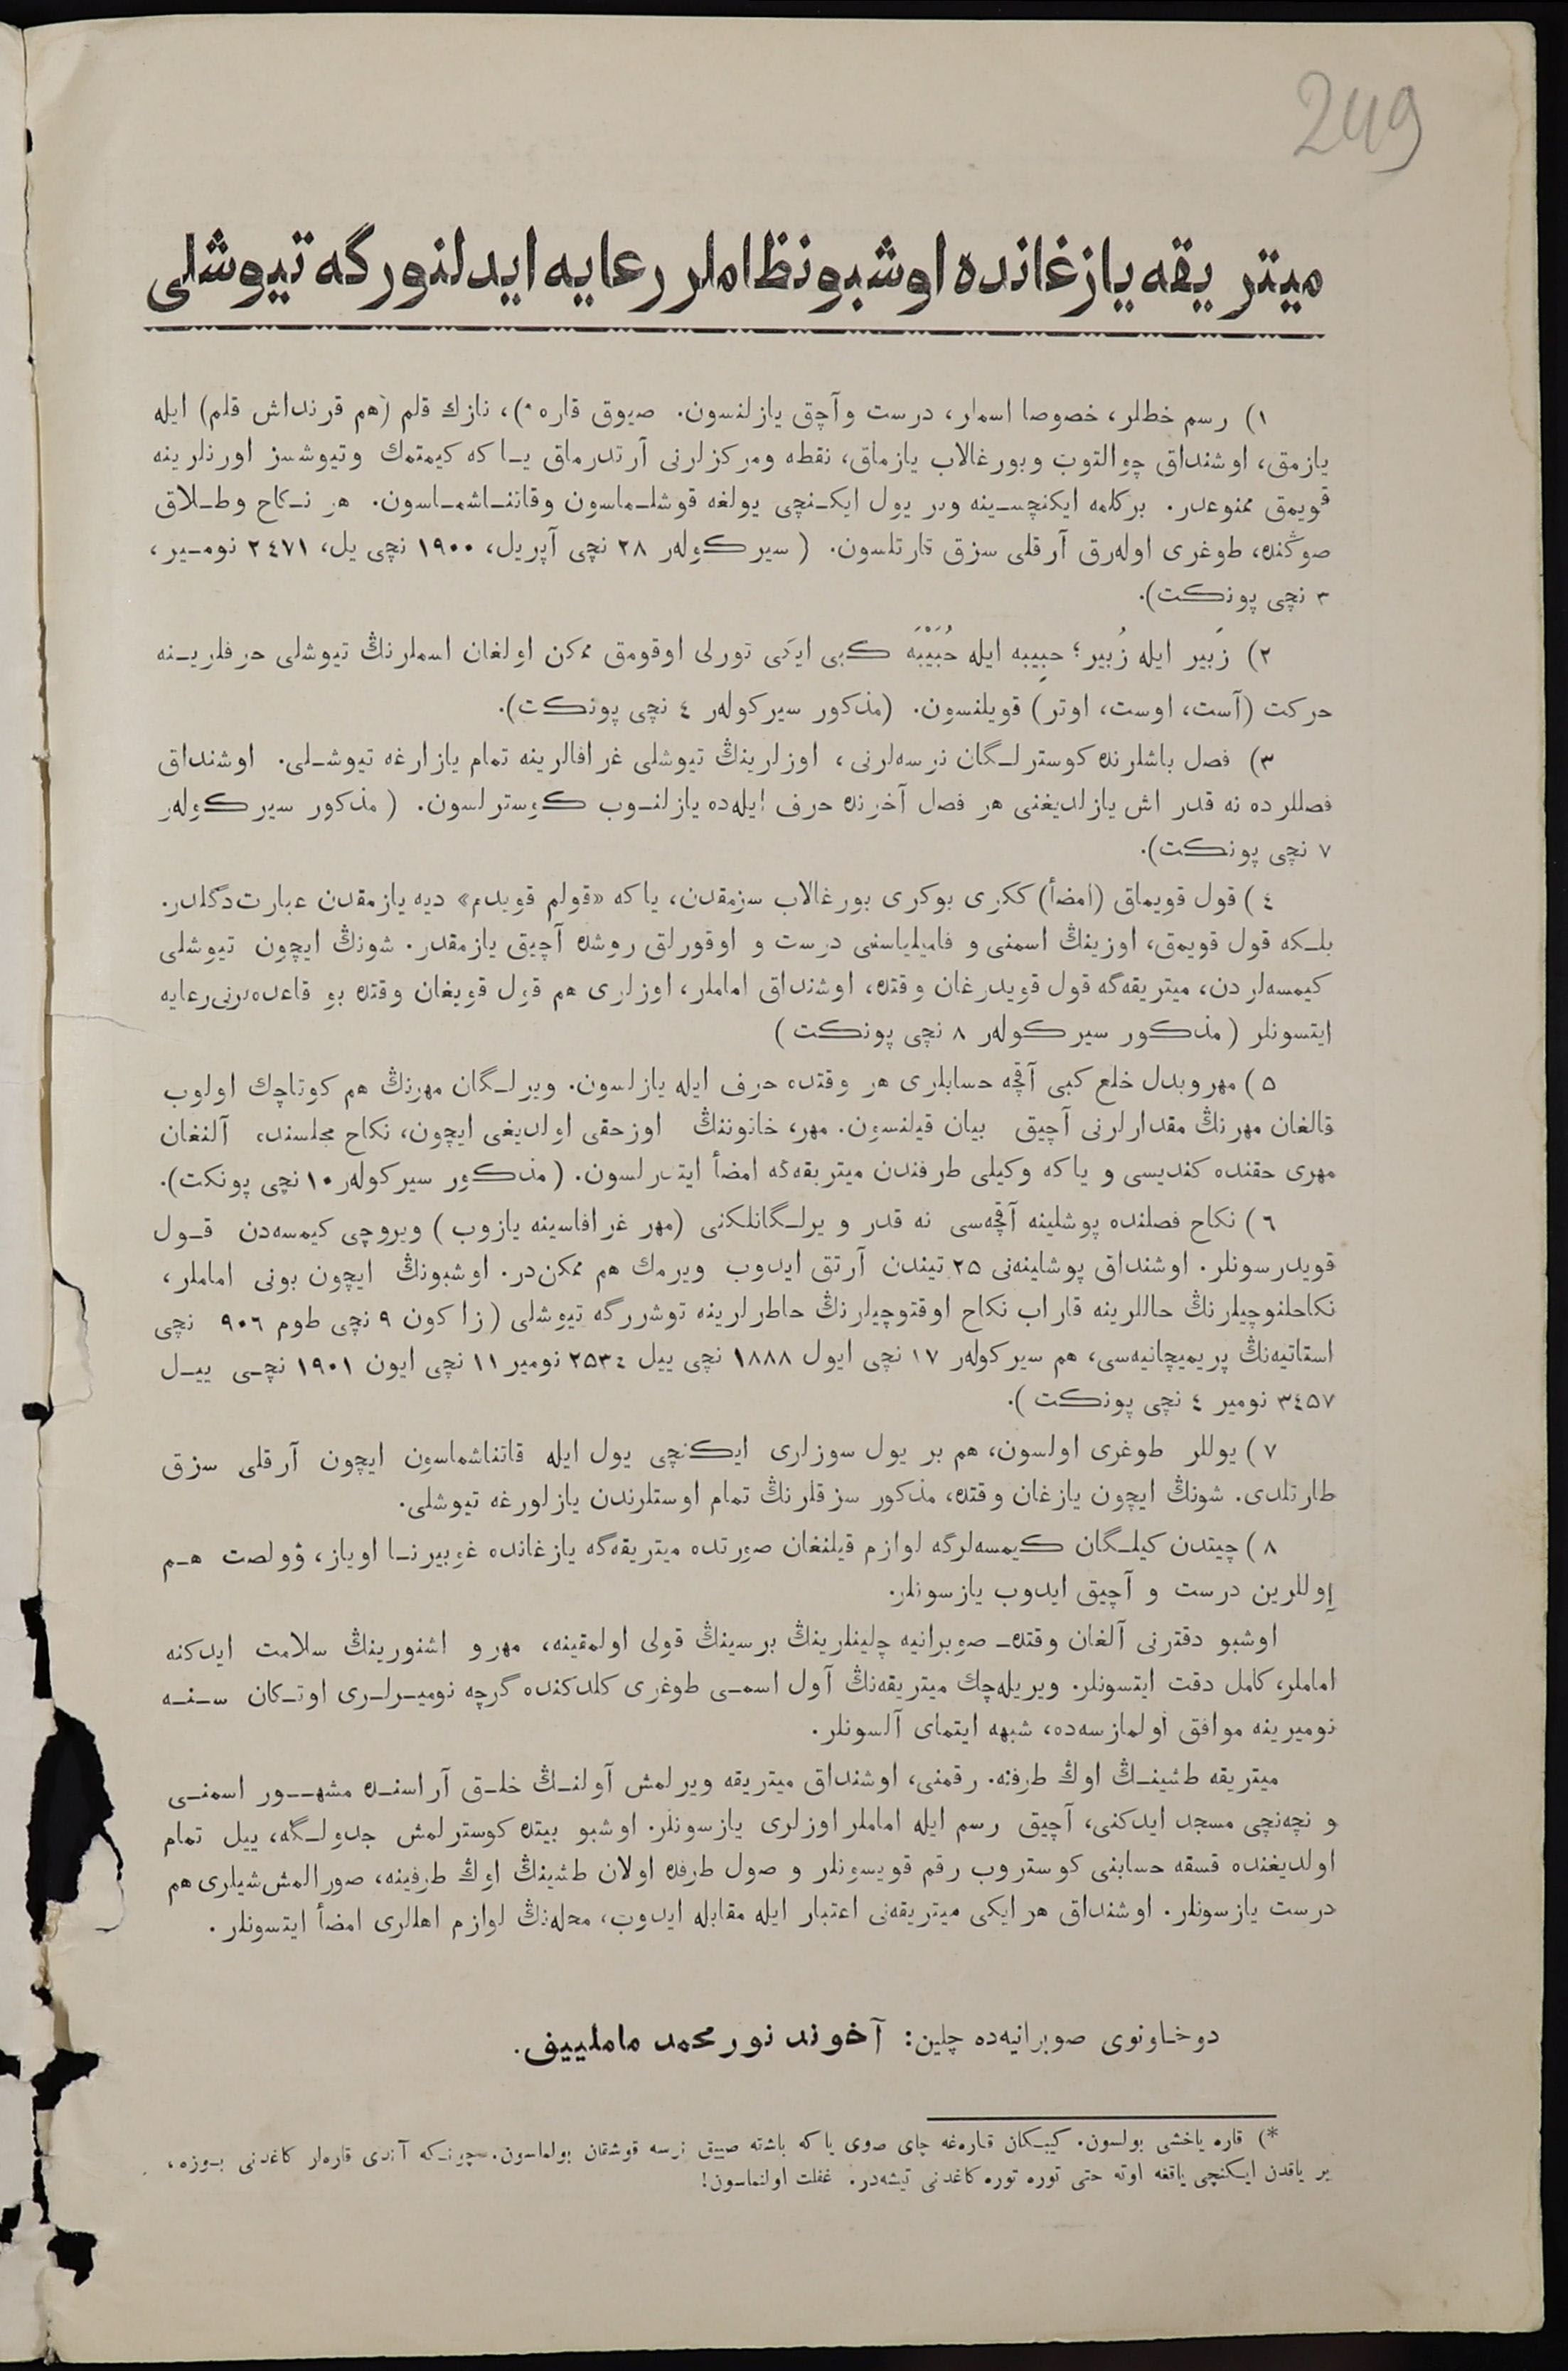 249
ميتريقه يازغانده اوشبو نظاملر رعايه ايدلنورگه تيوشلى
١) رسم خطلر، خصوصا اسملر، درست وآچق يازلنسون. صيوق قاره *)، نازك قلم (هم قرنداش قلم) ايله
يازمق، اوشنداق چوالتوب وبورغالاب يازماق، نقطه ومركزلرنى آرتدرماق يـا كه كيمتمك وتيوشسز اورنلرينه
قويمق ممنوعدر. بركلمه ايكنچسـينه وبر يول ايكـنچى يولغه قوشلـماسون وقاتنـاشمـاسون. هر نـكاح وطـلاق
صوڭنده، طوغرى اولەرق آرقلى سزق تارتلسون. (سيركولەر ٢٨ نچى آپريل، ١٩٠٠ نچى يل، ٢٤٧١ نومـير،
٣ نچى پونكت).
٢) زَبير ايله زُبير؛ حبِيبه ايله حُبَيْبَه كبى ايكى تورلى اوقومق ممكن اولغان اسملرنڭ تيوشلى حرفلريـنه
حركت (آست، اوست، اوتر) قويلنسون. (مذكور سيركولەر ٤ نچى پونكت).
٣) فصل باشلرنده كوسترلـگان نرسەلرنى، اوزلرينڭ تيوشلى غرافالرينه تمام يازارغه تيوشـلى. اوشنداق
فصللرده نه قدر اش يازلديغنى هر فصل آخرنده حرف ايلەده يازلنـوب كوسترلسون. (مذكور سيركولەر
٧ نچى پونكت).
٤) قول قويماق (امضأ) ككرى بوكرى بورغالاب سزمقدن، ياكه «قولم قويدم» ديه يازمقدن عبارت دگلدر.
بلـكه قول قويمق، اوزينڭ اسمنى و فاميلياسنى درست و اوقورلق روشده آچيق يازمقدر. شونڭ ايچون تيوشلى
كيمسەلردن، ميتريقەگه قول قويدرغان وقتده، اوشنداق اماملر، اوزلرى هم قول قويغان وقتده بو قاعدەلرنى رعايه
ايتسونلر (مذكور سيركولەر ٨ نچى پونكت)
۵) مهر وبدل خلع كبى آقچه حسابلرى هر وقتده حرف ايله يازلسون. ويرلـگان مهرنڭ هم كوتاچك اولوب
قالغان مهرنڭ مقدارلرنى آچيق بيان قيلنسون. مهر، خانوننڭ اوز حقى اولديغى ايچون، نكاح مجلسنده آلنغان
مهرى حقنده كنديسى و ياكه وكيلى طرفندن ميتريقەگه امضأ ايتدرلسون. (مذكور سيركولەر ١٠ نچى پونكت).
٦) نكاح فصلنده پوشلينه آقچەسى نه قدر ويرلـگانلكنى (مهر غرافاسينه يازوب) ويروچى كيمسەدن قـول
قويدرسونلر. اوشنداق پوشلينەنى ٢۵ تيندن آرتق ايدوب ويرمك هم ممكن در. اوشبونڭ ايچون بونى اماملر،
نكاحلنوچيلرنڭ حاللرينه قاراب نكاح اوقتوچيلرنڭ خاطرلرينه توشررگه تيوشلى (زاكون ٩ نچى طوم ٩٠٦ نچى
استاتيەنڭ پريميچانيەسى، هم سيركولەر ١٧ نچى ايول ١٨٨٨ نچى ييل ٢۵٣٤ نومير ١١ نچى ايون ١٩٠١ نچـى ييـل
٣٤۵٧ نومير ٤ نچى پونكت).
٧) يوللر طوغرى اولسون، هم بر يول سوزلرى ايكنچى يول ايله قاتناشماسون ايچون آرقلى سزق
طارتلدى. شونڭ ايچون يازغان وقتده، مذكور سزقلرنڭ تمام اوستلرندن يازلورغه تيوشلى.
٨) چيتدن كيلـگان كيمسەلرگه لوازم قيلنغان صورتده ميتريقەگه يازغانده غوبيرنـا اوياز، ۋولصت هـم
اوللرين درست و آچيق ايدوب يازسونلر.
اوشبو دفترنى آلغان وقتده صوبرانيه چلينلرينڭ برسينڭ قولى اولمقينه، مهر و اشنورينڭ سلامت ايدكنه
اماملر، كامل دقت ايتسونلر. ويريلەچك ميتريقەنڭ آول اسمـى طوغرى كلدكنده گرچه نوميـرلـرى اوتـكان سـنـه
نوميرينه موافق اولمازسەده، شبهه ايتماى آلسونلر.
ميتريقه طشينـڭ اوڭ طرفنه رقمنى، اوشنداق ميتريقه ويرلمش آولنـڭ خلـق آراسنـده مشهـور اسمنـى
و نچەنچى مسجد ايدكنى، آچيق رسم ايله اماملر اوزلرى يازسونلر. اوشبو بيتده كوسترلمش جدولـگه، ييل تمام
اولديغنده قسقه حسابنى كوستروب رقم قويسونلر و صول طرفده اولان طشينڭ اوڭ طرفينه، صورالمش شيلرى هم
درست يازسونلر. اوشنداق هر ايكى ميتريقەنى اعتبار ايله مقابله ايدوب، محلەنڭ لوازم اهللرى امضأ ايتسونلر.
دوخاونوى صوبرانيەده چلين: آخوند نور محمد مامليیف.
*) قاره ياخشى بولسون. كيبـكان قارەغه چاى صوى ياكه باشته صييق نرسه قوشقان بولماسون. چونـكه آندى قارەلر كاغدنى بـوزه،
بر ياقدن ايـكنچى ياقغه اوته حتى توره توره كاغدنى تيشەدر. غفلت اولنماسون!